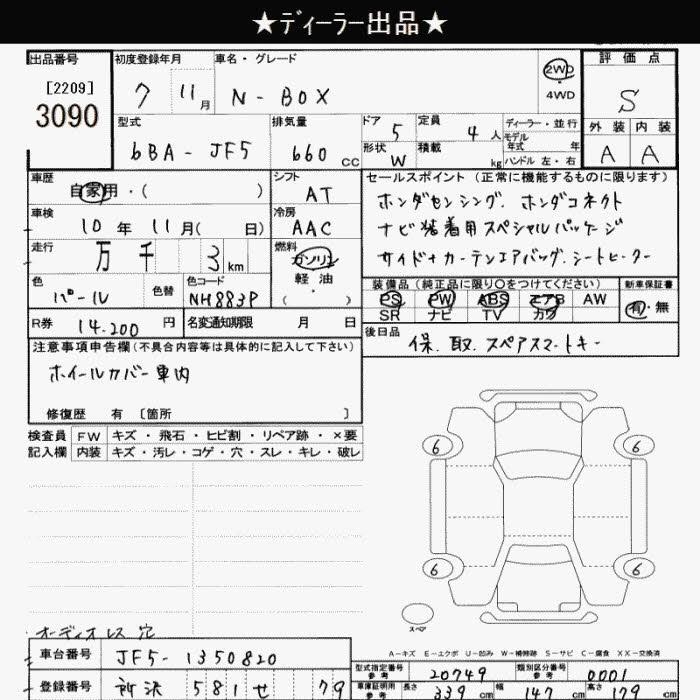 ★ディーラー出品★
出品番号 初度登録年月 車名・グレード 評価点
[2209] 7 11月 N-BOX 2WD S
3090 4WD
型式 排気量 ドア 定員 ディーラー・並行 外装 内装
6BA-JF5 660cc 5 4人 モデル年式 年 A A
形状 W 積載 kg ハンドル 左・右
車歴 シフト セールスポイント(正常に機能するものに限ります)
自家用・( ) AT ホンダセンシング. ホンダコネクト
車検 冷房 ナビ装着用スペシャルパッケージ
10年11月( 日) AAC サイド+カーテンエアバッグ. シートヒーター
走行 燃料
万 千 3km ガソリン・軽油( )
装備品(純正品に限り○をつけてください) 新車保証書
色 色替 色コード PS PW ABS エアB AW 有・無
パール NH883P SR ナビ TV カワ
R券 14.200円 名変通知期限 月 日 後日品
保. 取. スペアスマートキー
注意事項申告欄(不具合内容等は具体的に記入して下さい)
ホイールカバー車内
修復歴 有 〔箇所 〕
検査員 FW キズ・飛石・ヒビ割・リペア跡・×要
記入欄 内装 キズ・汚レ・コゲ・穴・スレ・キレ・破レ
6 6
6 6
スペア
オーディオレス 穴
A-キズ E-エクボ U-凹み W-補修跡 S-サビ C-腐食 XX-交換済
車台番号 JF5-1350820
型式指定番号 参考 20749 類別区分番号 参考 0001
登録番号 所沢 581 せ 79
車庫証明用 参考 長さ 339cm 幅 147cm 高さ 179cm